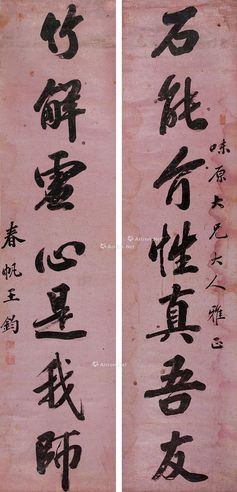 石能介性真吾友
味原大兄大人雅正
竹解靈心是我師
春帆王鈞